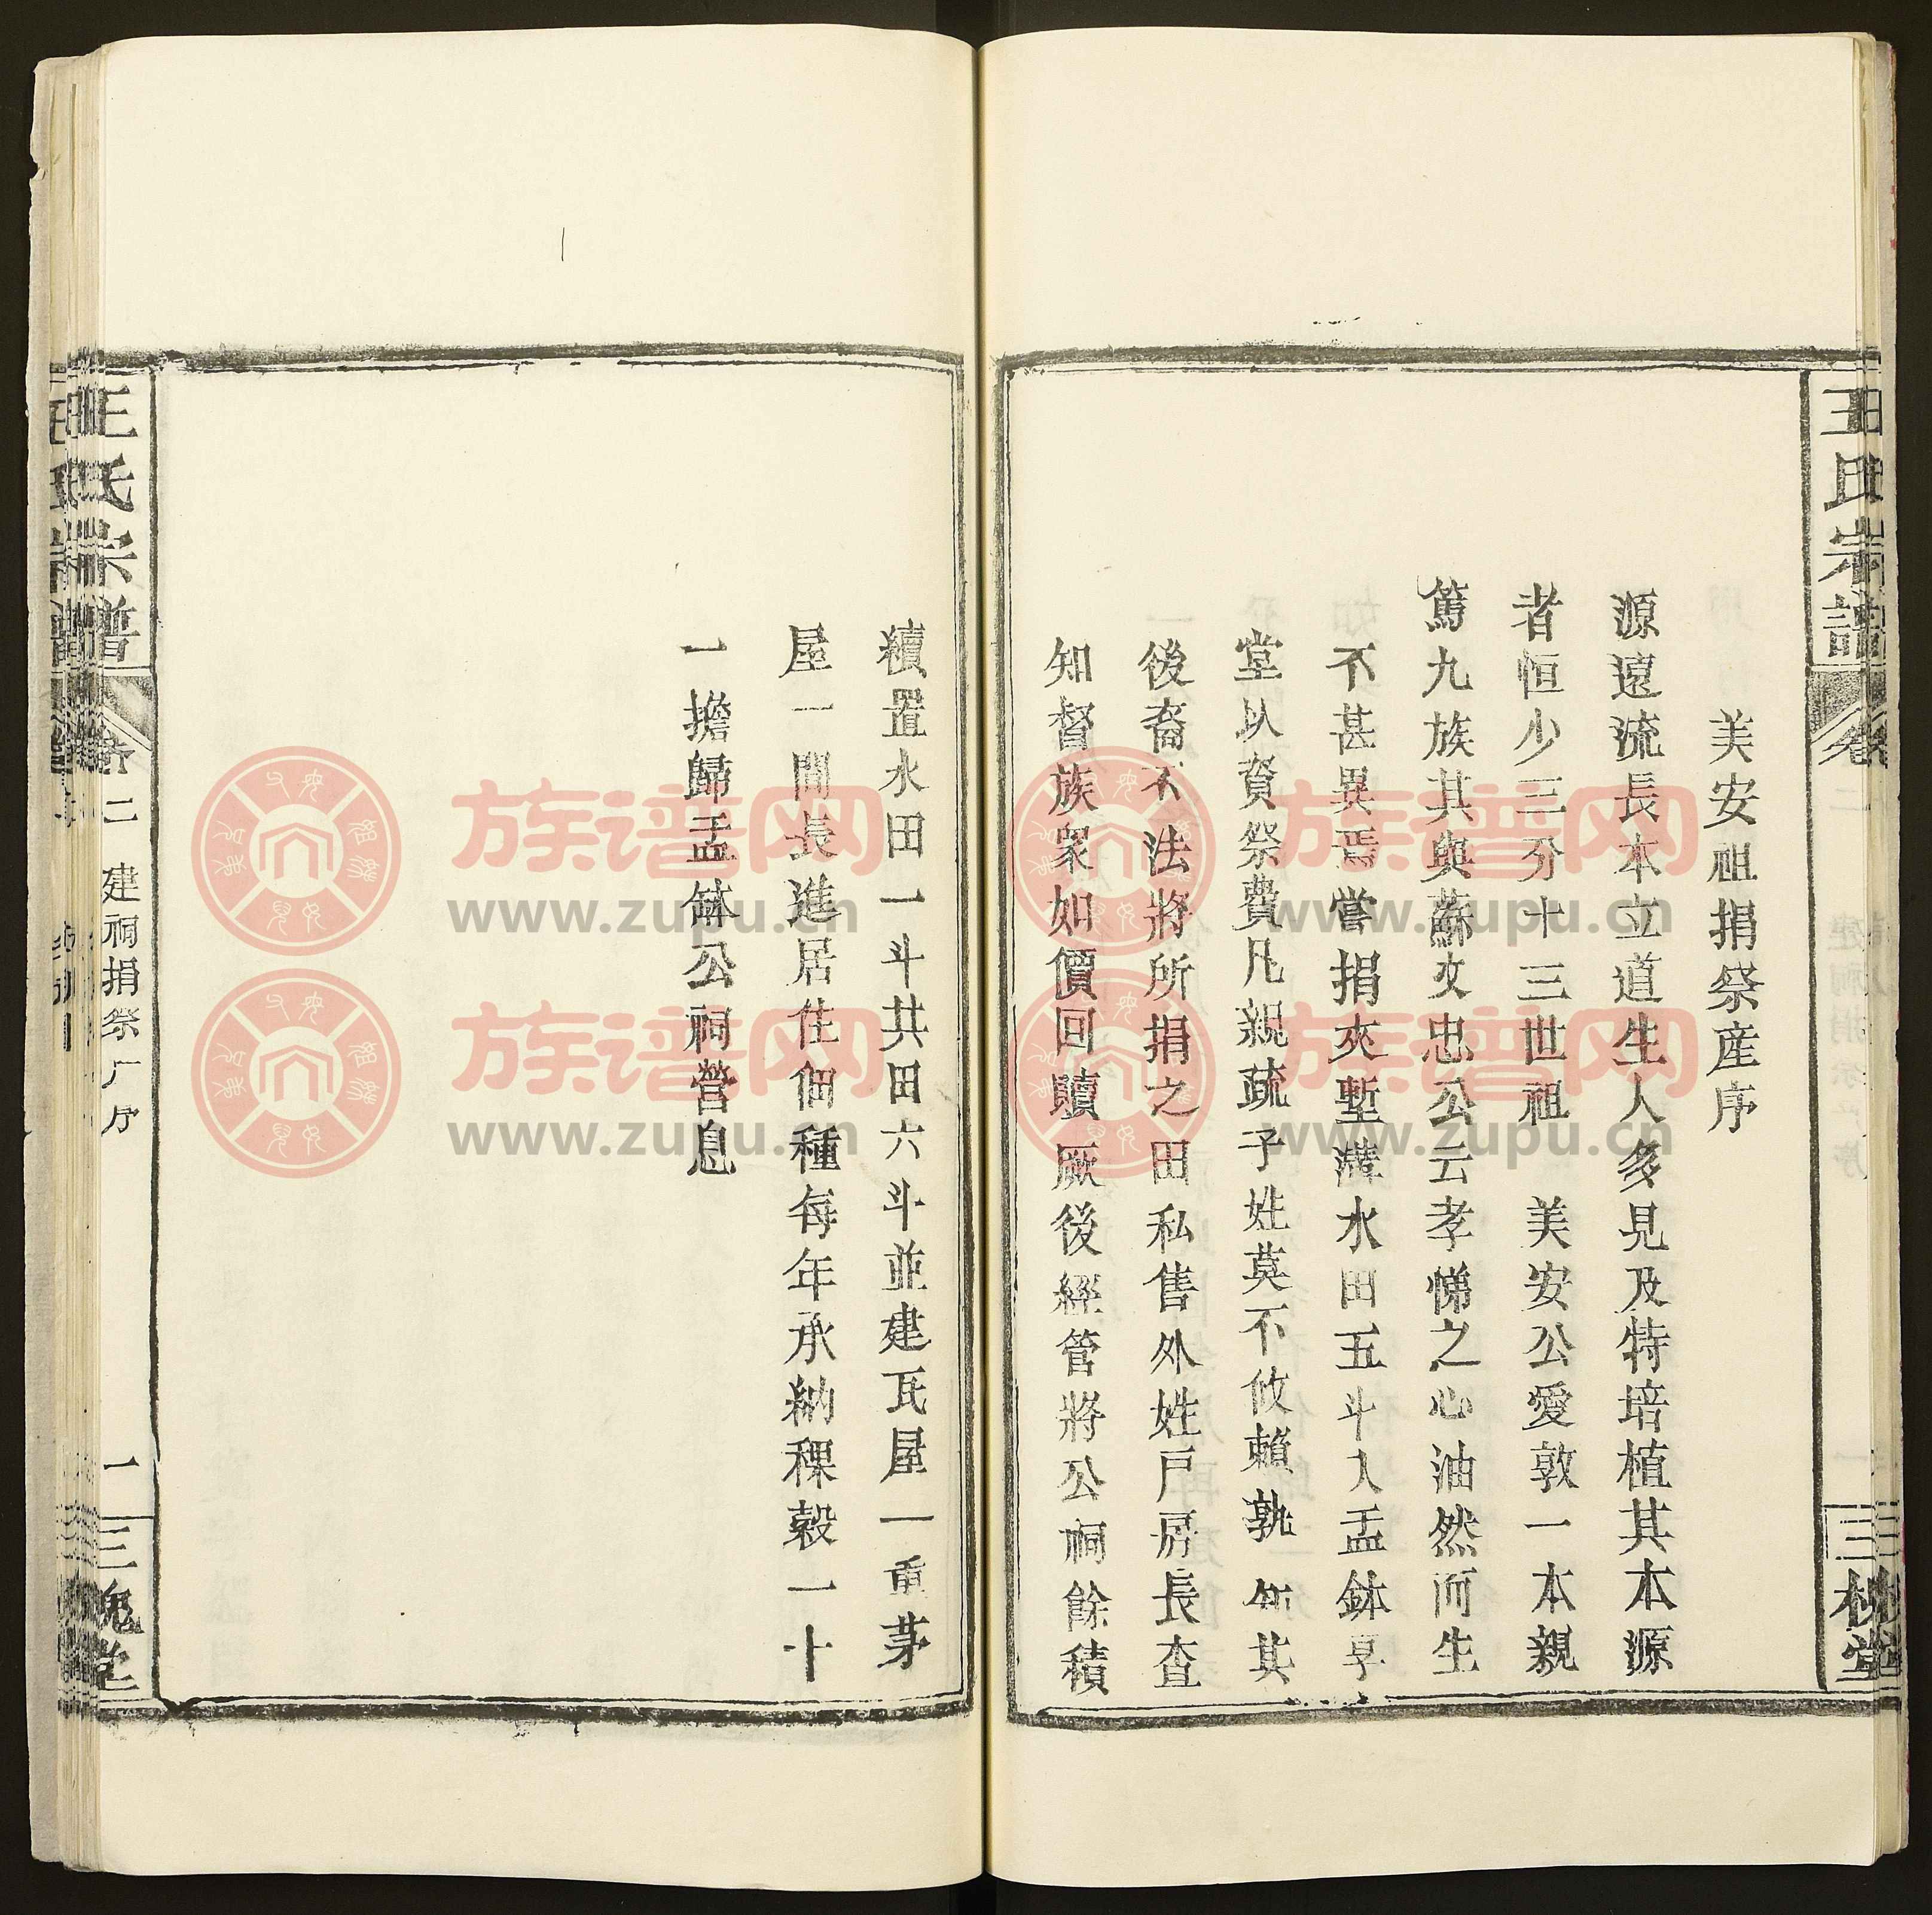 王氏宗譜
卷
三槐堂
美安祖捐祭産序
源遠流長本立道生人多見及特培植其本源
者恒少三分十三世祖　美安公愛敦一本親
篤九族其與蘇文忠公云孝悌之心油然而生
不甚異焉嘗捐夾塹溝水田五斗入盂鉢享
堂以資祭費凡親疏子姓莫不攸賴孰知其
後裔不法將所捐之田私售外姓戶房長查
知督族衆如價回贖厥後經管將公祠餘積
續置水田一斗共田六斗並建瓦屋一重茅
屋一間長進居住佃種每年承納稞穀一十
一擔歸盂鉢公祠營息
王氏宗譜
卷二　建祠捐祭产序
一
三槐堂
族谱网
www.zupu.cn
族谱网
www.zupu.cn
族谱网
www.zupu.cn
族谱网
www.zupu.cn